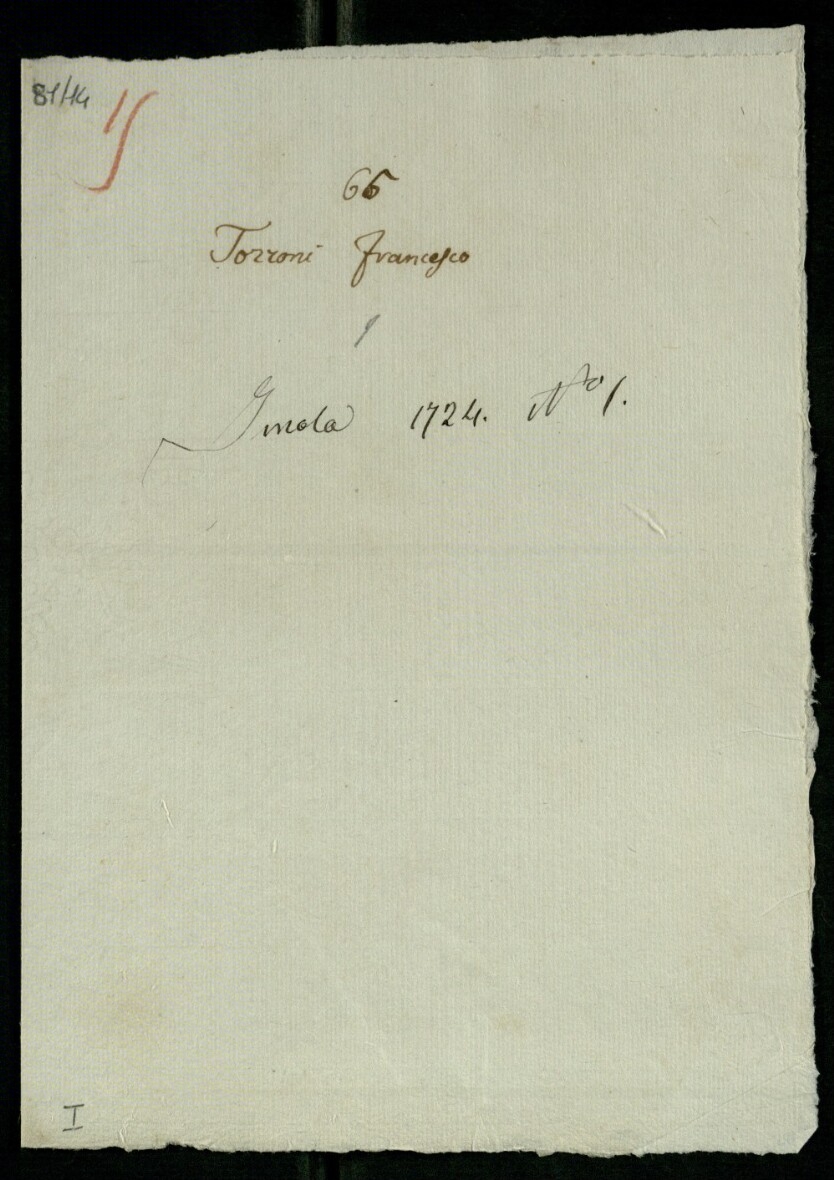 81/14
66
Torroni Francesco
1
Imola 1724. No 1.
I